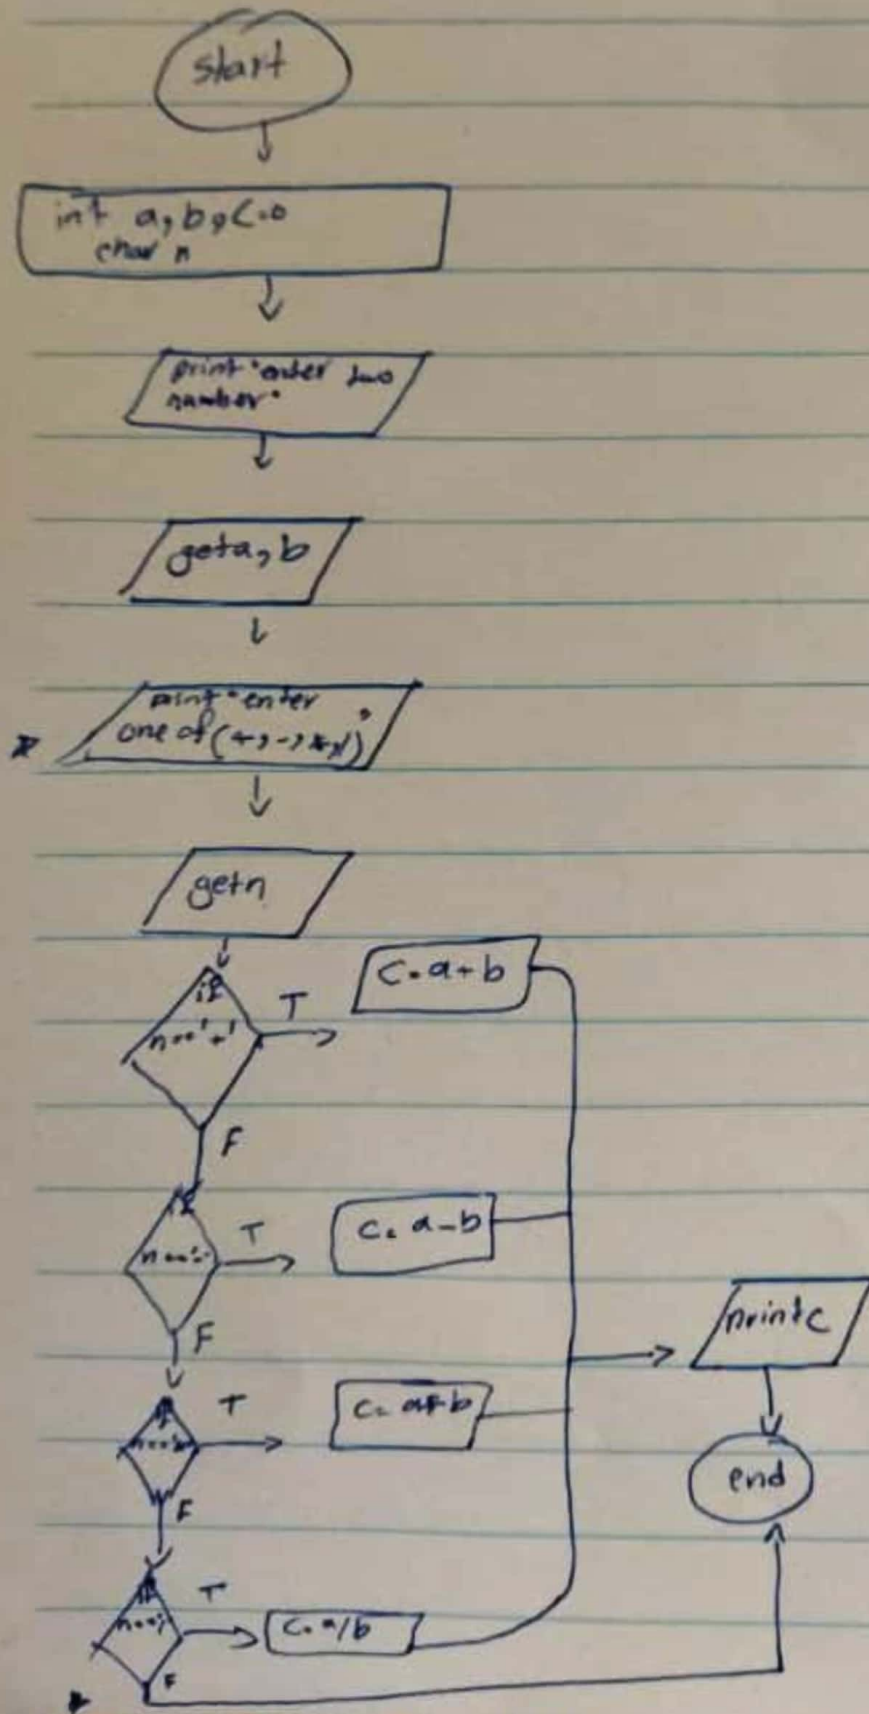 start
int a, b, c=0
char n
print "enter two
number"
get a, b
print "enter
one of (+, -, *, /)"
get n
if
n=='+'
T
c=a+b
F
if
n=='-'
T
c=a-b
F
print c
if
T
c=a*b
F
end
if
T
c=a/b
F